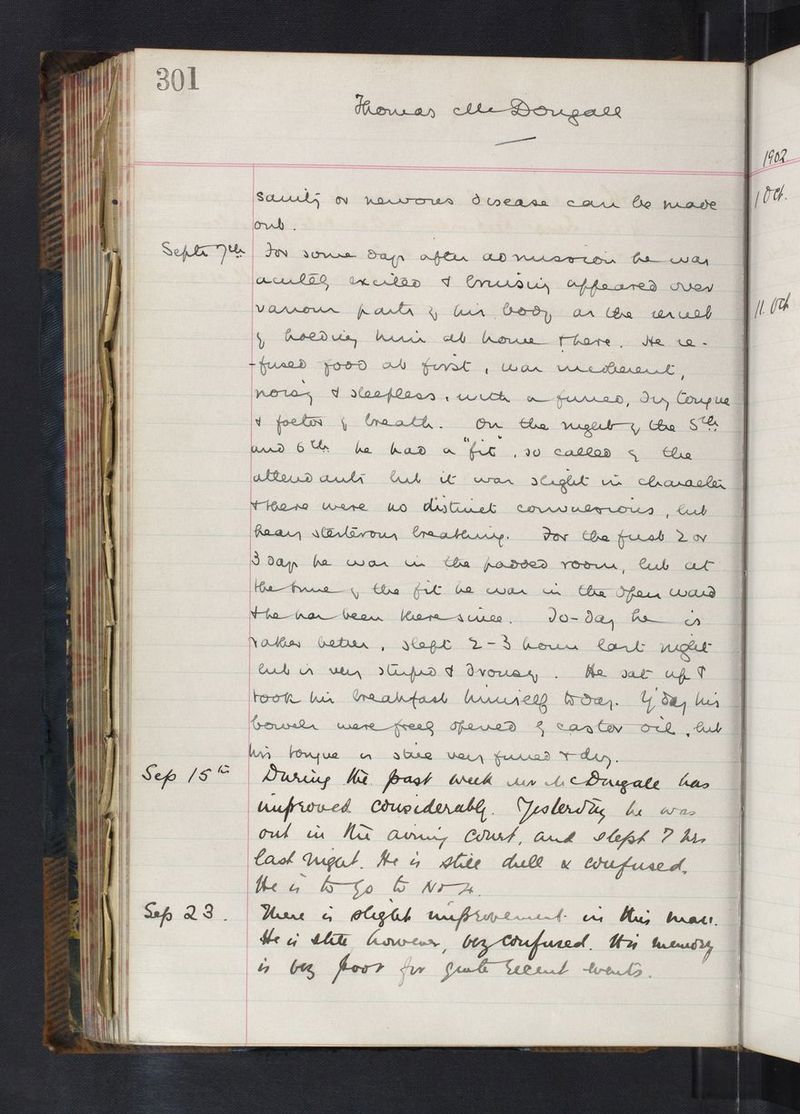 301
Thomas McDongall
1902
sanity or nervous disease can be made
out.
1 Oct.
Septr 7th For some days after admission he was
acutely excited & bruising appeared over
various parts of his body as the result
11. Oct
of holding him at home & here. He re-
-fused food at first, was incoherent,
noisy & sleepless, with a furred, dry tongue
& foetor of breath. On the night of the 5th
and 6th he had a "fit", so called by the
attendants but it was slight in character
& there were no distinct convulsions, but
heavy stertorous breathing. For the first 2 or
3 days he was in the padded room, but at
the time of the fit he was in the open ward
& he has been there since. To-day he is
rather better, slept 2-3 hours last night
but is very stupid & drowsy. He sat up &
took his breakfast himself today. Y'day his
bowels were freely opened by castor oil, but
his tongue is still very furred & dry.
Sep 15th During the past week Mr McDougall has
improved considerably. Yesterday he was
out in the airing court, and slept 7 hrs
last night. He is still dull & confused.
He is to go to No 4.
Sep 23. There is slight improvement in this man.
He is still however, very confused. His memory
is very poor for quite recent events.